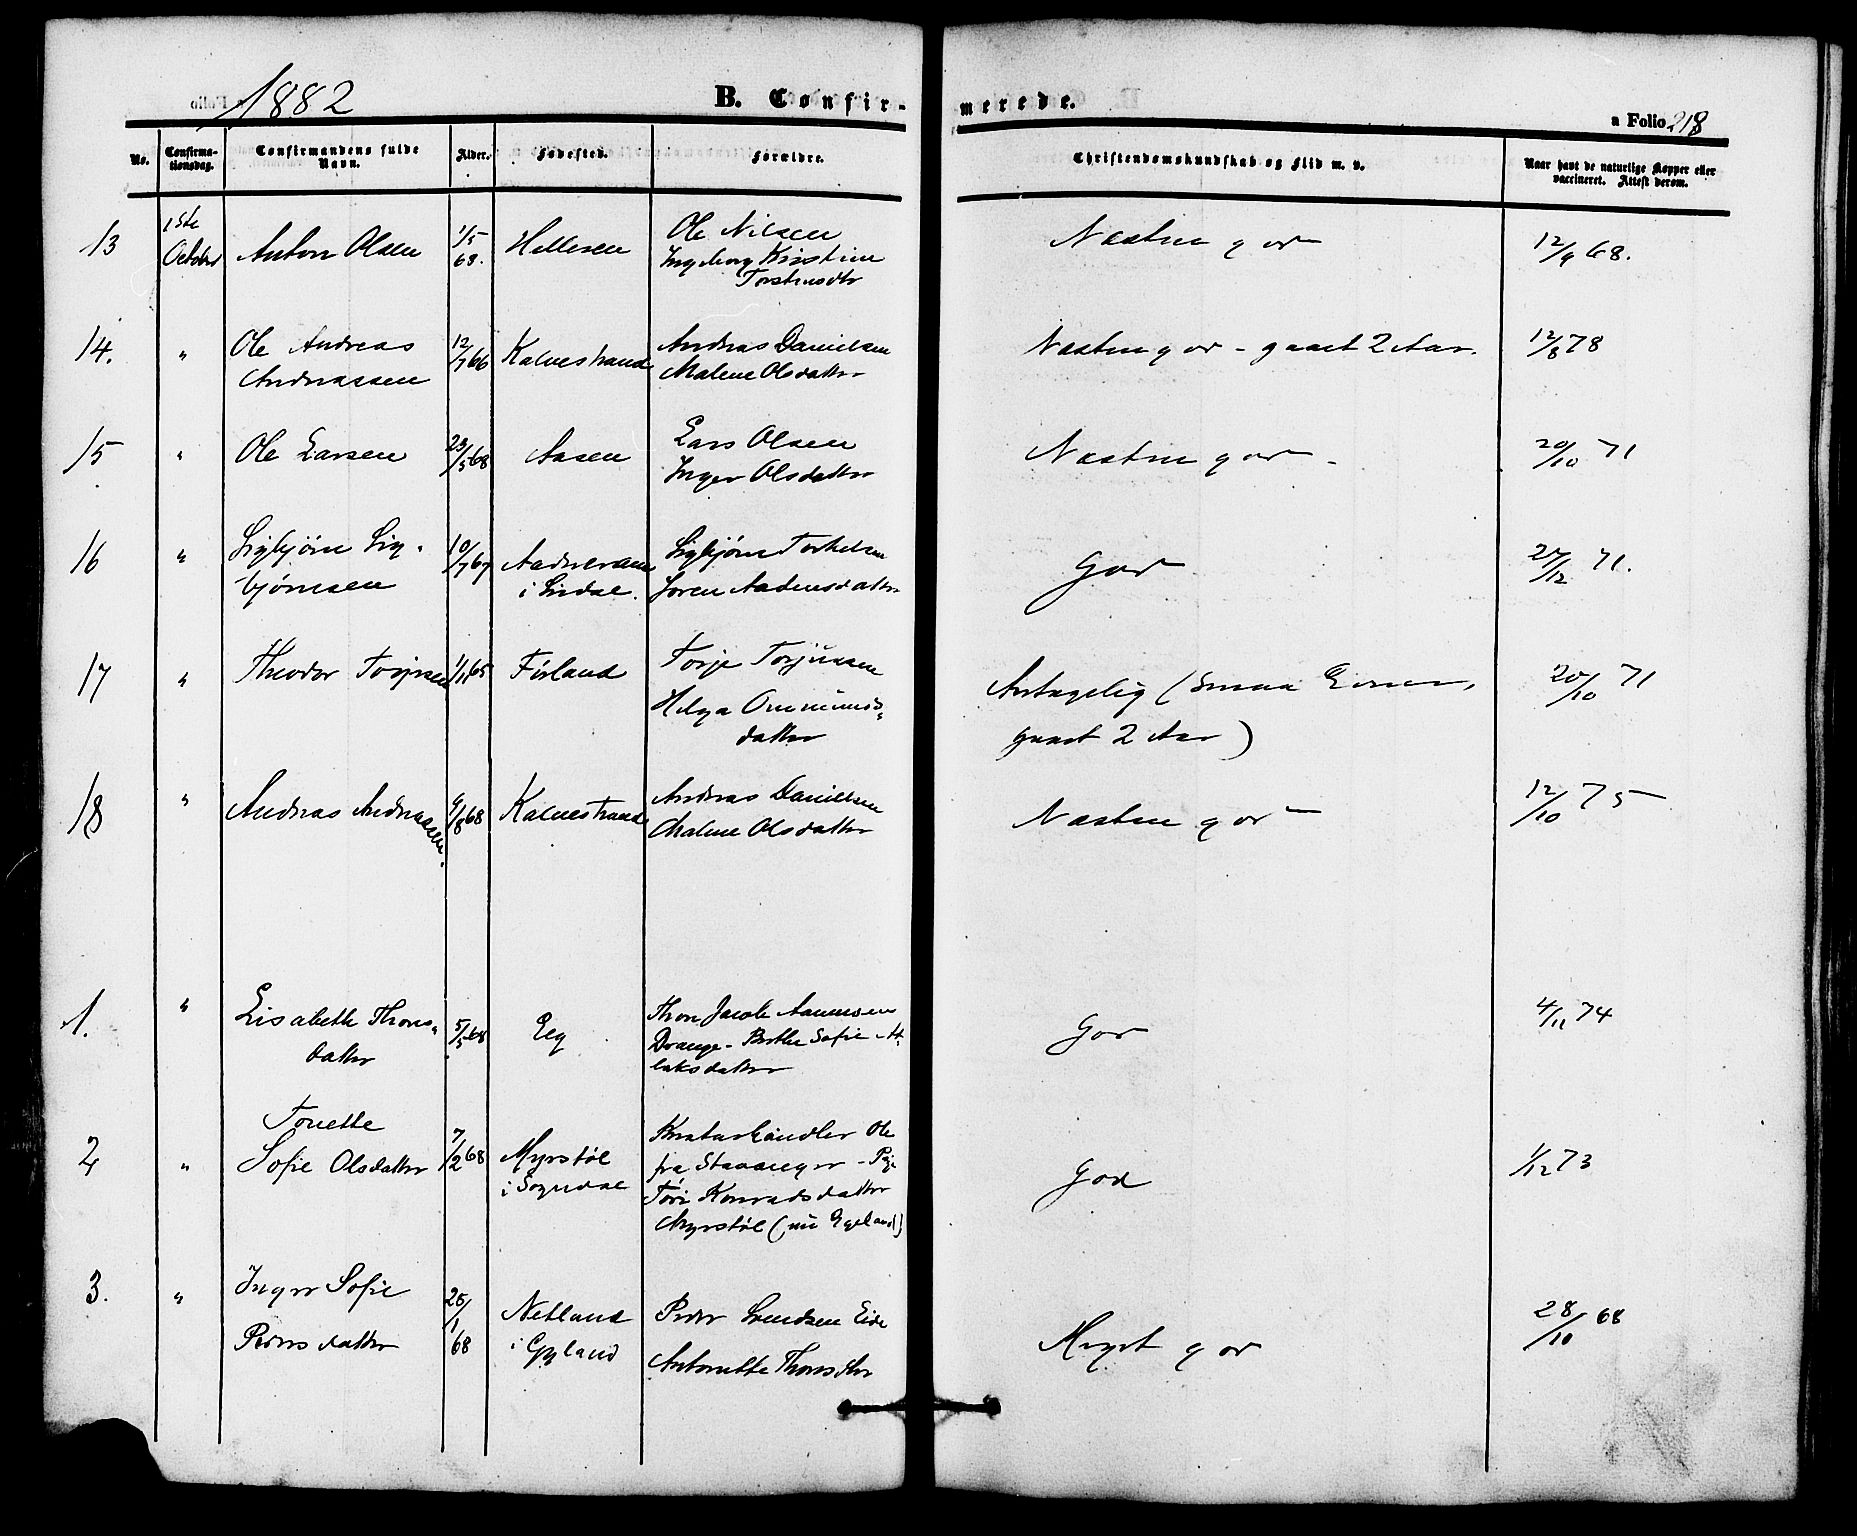 1882
B. Confir-
merede.
a Folio 218
No.
Confirma-
tionsdag.
Confirmandens fulde
Navn.
Alder.
Fødested.
Forældre.
Christendomskundskab og Flid m. v.
Naar havt de naturlige Kopper eller
vaccineret. Attest derom.
13 1ste October Anton Olsen 1/5 68. Hellesen
Ole Nilsen
Ingeborg Kristine
Torstensdtr
Næsten god
12/9 68.
14. " Ole Andreas
Andreassen
12/7 66 Kalvestrand
Andreas Danielsen
Malene Olsdatter
Næsten god - gaaet 2 Aar.
12/8 78
15 " Ole Larsen 23/5 68 Aasen
Lars Olsen
Inger Olsdatter
Næsten god -
20/10 71
16 " Sigbjørn Sig-
bjørnsen
10/7 67
i Sirdal.
Sigbjørn Torkelsen
Joren Aadensdatter
God
27/12 71.
17 " Theodor Torjusen 1/11 65 Førland
Torje Torjussen
Helga Ommunds-
datter
Antagelig (smaa Evner,
gaaet 2 Aar)
20/10 71
18 " Andreas Andreassen. 9/8 68 Kalvestrand
Andreas Danielsen
Malene Olsdatter
Næsten god
12/10 75
1. " Elisabeth Thors-
datter
5/5 68 Eeg
Thor Jacob Aanensen
Drange - Berthe Sofie At-
laksdatter
God
4/11 74
2 " Tonette
Sofie Olsdatter
7/2 68 Myrstøl
i Sogndal
Kreaturhandler Ole
fra Stavanger - Pige
Tøri Konradsdatter
Myrstøl (nu Egeland)
God
1/12 73
3. " Inger Sofie
Pedersdatter
25/1 68
Netland
i Gyland
Peder Svendsen Eide
Antonette Thorsdtr
Meget god
28/10 68